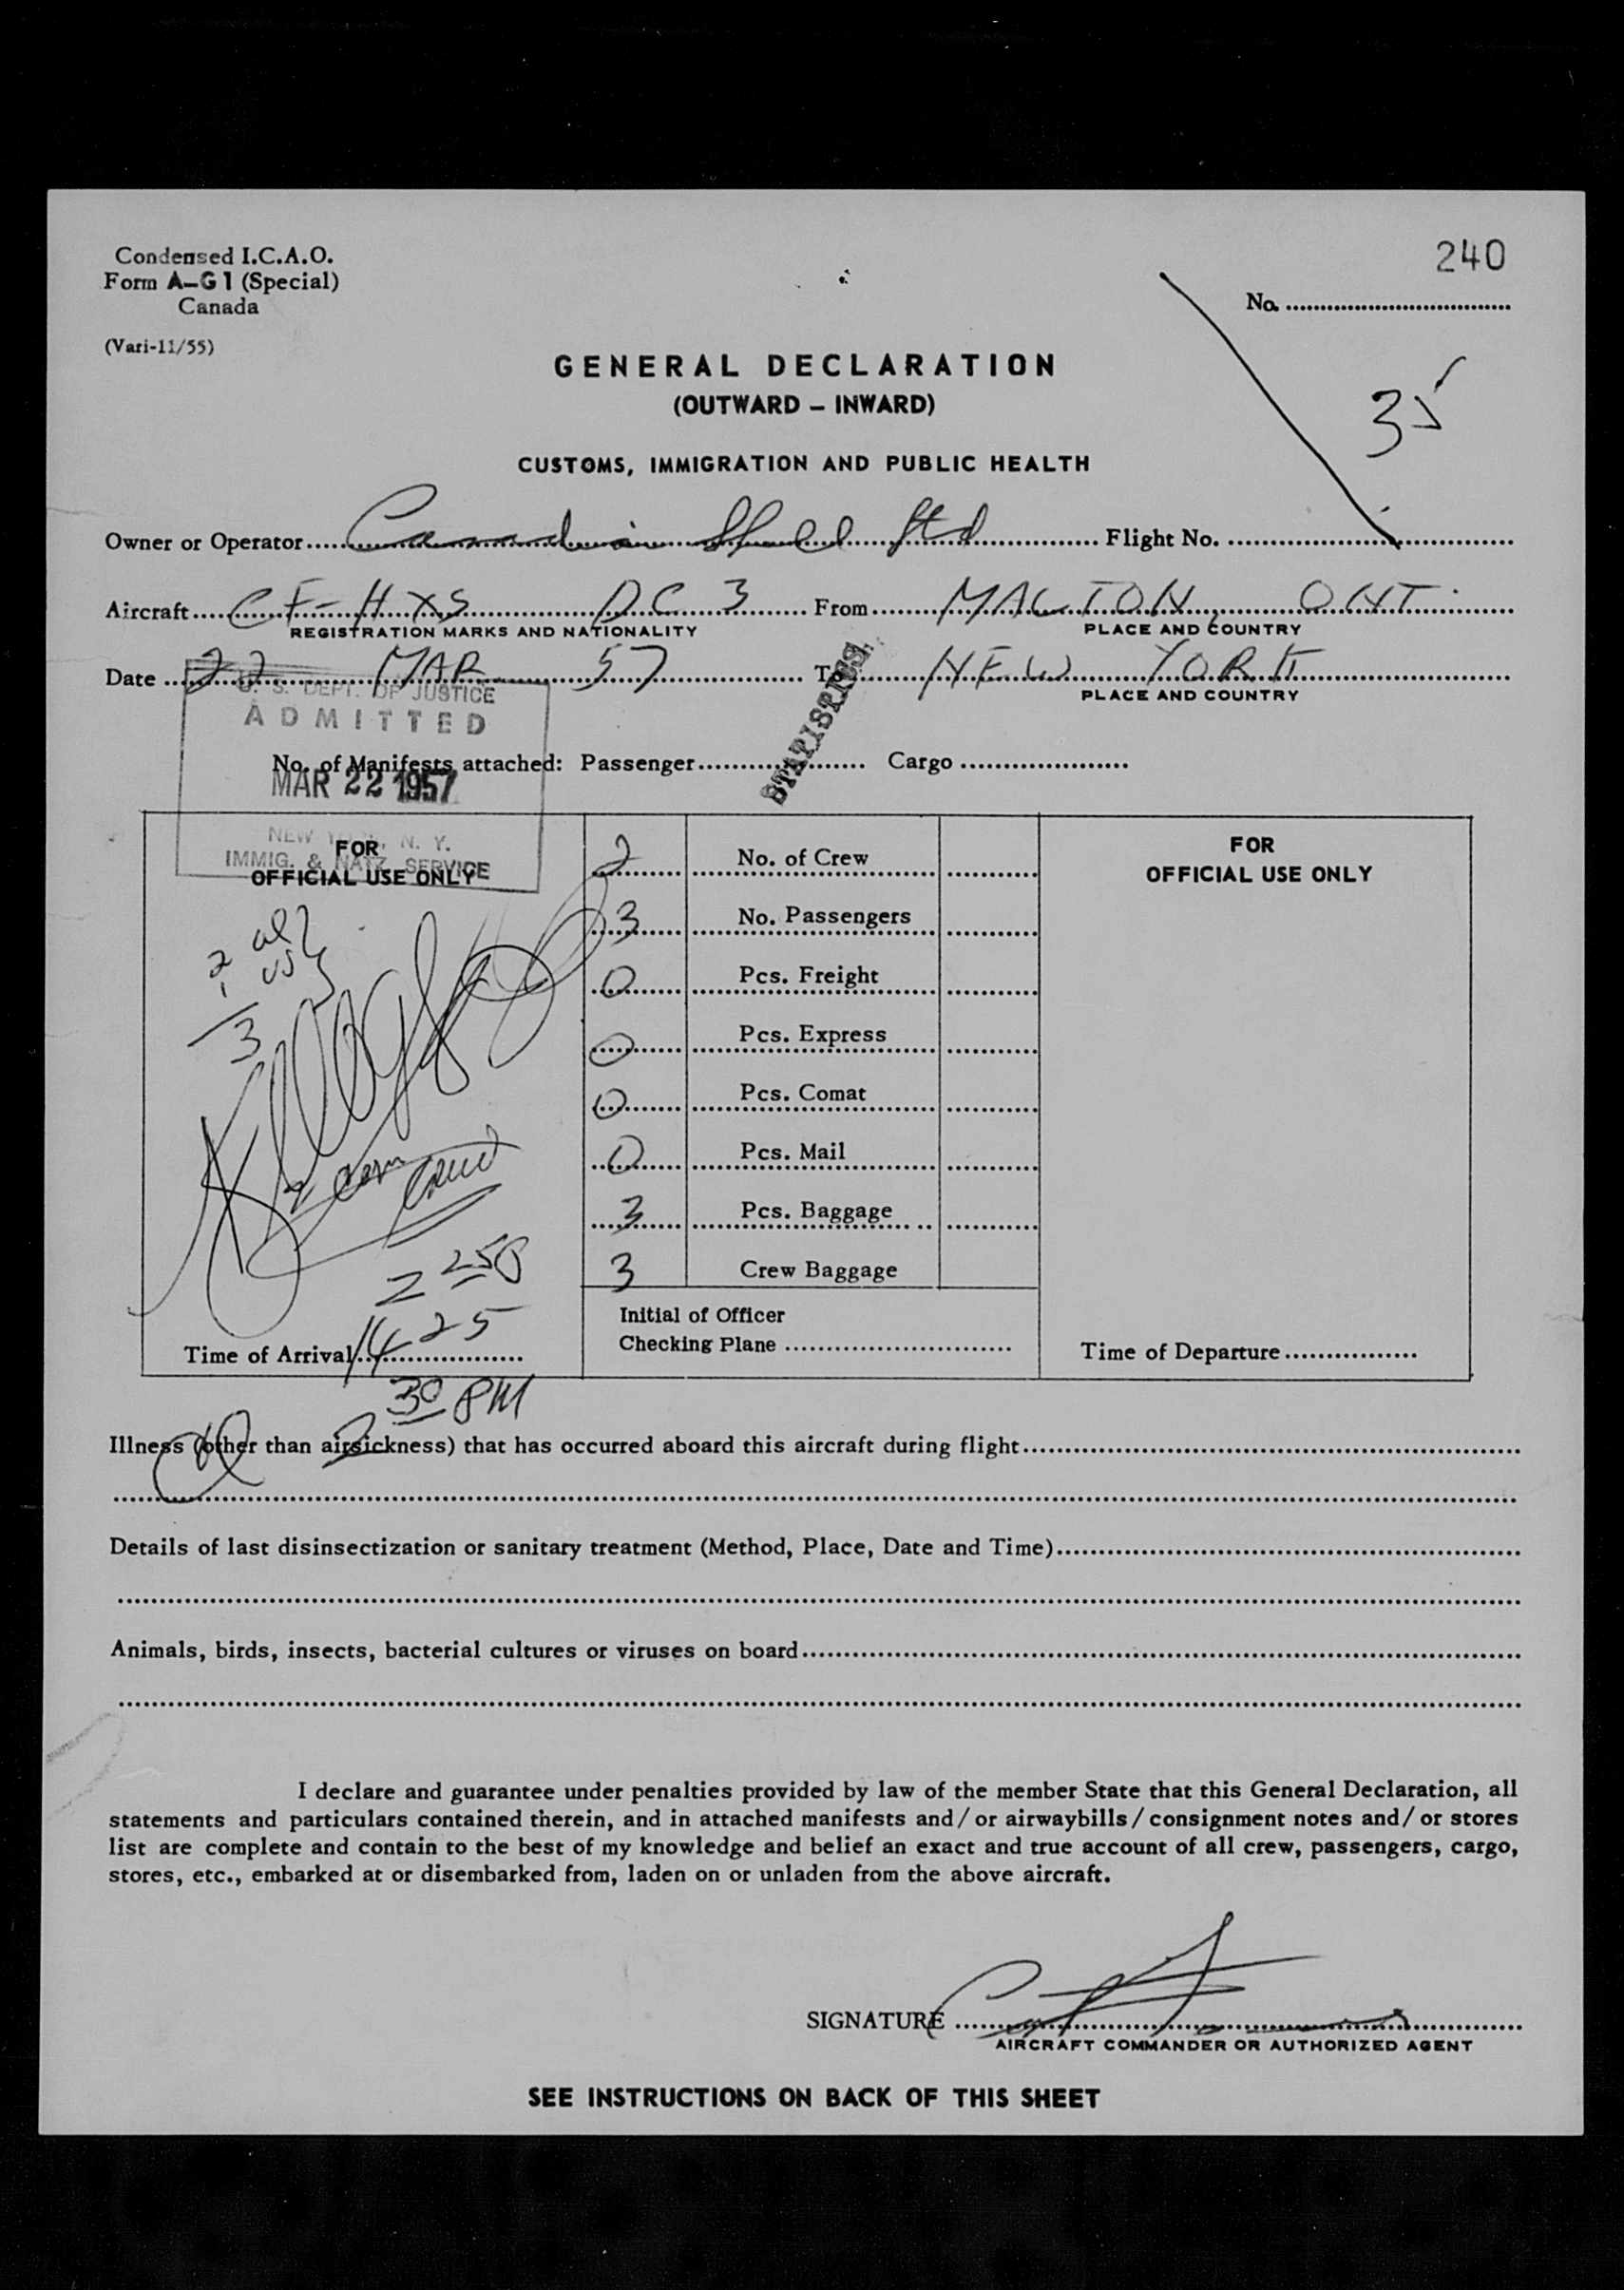 Condensed I.C.A.O.
Form A-G1 (Special)
Canada
(Vari-11/55)
240
No. ........
35
GENERAL DECLARATION
(OUTWARD – INWARD)
CUSTOMS, IMMIGRATION AND PUBLIC HEALTH
Owner or Operator Canadian Shell Ltd Flight No. ........
Aircraft CF-HXS DC 3 From MALTON, ONT.
REGISTRATION MARKS AND NATIONALITY PLACE AND COUNTRY
Date 22 MAR 57 To NEW YORK
PLACE AND COUNTRY
U. S. DEPT. OF JUSTICE
ADMITTED
MAR 22 1957
NEW YORK, N. Y.
IMMIG. & NATZ. SERVICE
STATISTICS
No. of Manifests attached: Passenger........ Cargo ........
FOR
OFFICIAL USE ONLY
2 al
1 US
3
2 No. of Crew
3 No. Passengers
0 Pcs. Freight
0 Pcs. Express
0 Pcs. Comat
0 Pcs. Mail
3 Pcs. Baggage
3 Crew Baggage
Initial of Officer
Checking Plane ........
2 250
Time of Arrival 1425
2 30 PM
FOR
OFFICIAL USE ONLY
Time of Departure ........
Illness (other than airsickness) that has occurred aboard this aircraft during flight ........
Details of last disinsectization or sanitary treatment (Method, Place, Date and Time) ........
Animals, birds, insects, bacterial cultures or viruses on board ........
I declare and guarantee under penalties provided by law of the member State that this General Declaration, all
statements and particulars contained therein, and in attached manifests and/or airwaybills/consignment notes and/or stores
list are complete and contain to the best of my knowledge and belief an exact and true account of all crew, passengers, cargo,
stores, etc., embarked at or disembarked from, laden on or unladen from the above aircraft.
SIGNATURE ........
AIRCRAFT COMMANDER OR AUTHORIZED AGENT
SEE INSTRUCTIONS ON BACK OF THIS SHEET